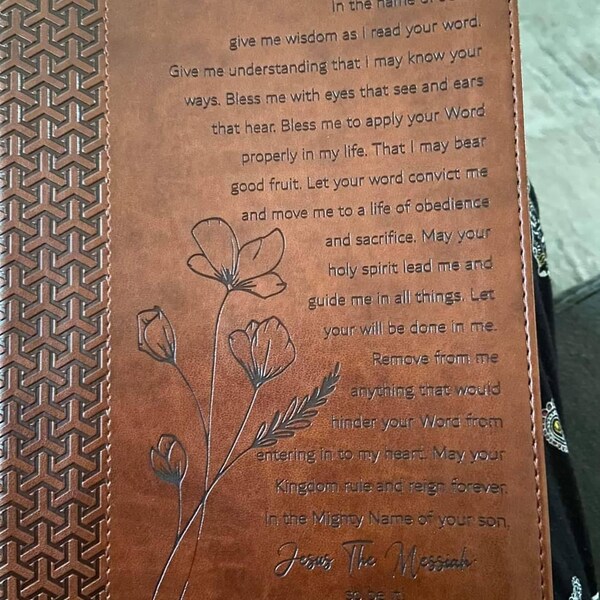 In the name of
give me wisdom as I read your word.
Give me understanding that I may know your
ways. Bless me with eyes that see and ears
that hear. Bless me to apply your Word
properly in my life. That I may bear
good fruit. Let your word convict me
and move me to a life of obedience
and sacrifice. May your
holy spirit lead me and
guide me in all things. Let
your will be done in me.
Remove from me
anything that would
hinder your Word from
entering in to my heart. May your
Kingdom rule and reign forever.
In the Mighty Name of your son,
Jesus The Messiah
so be it.